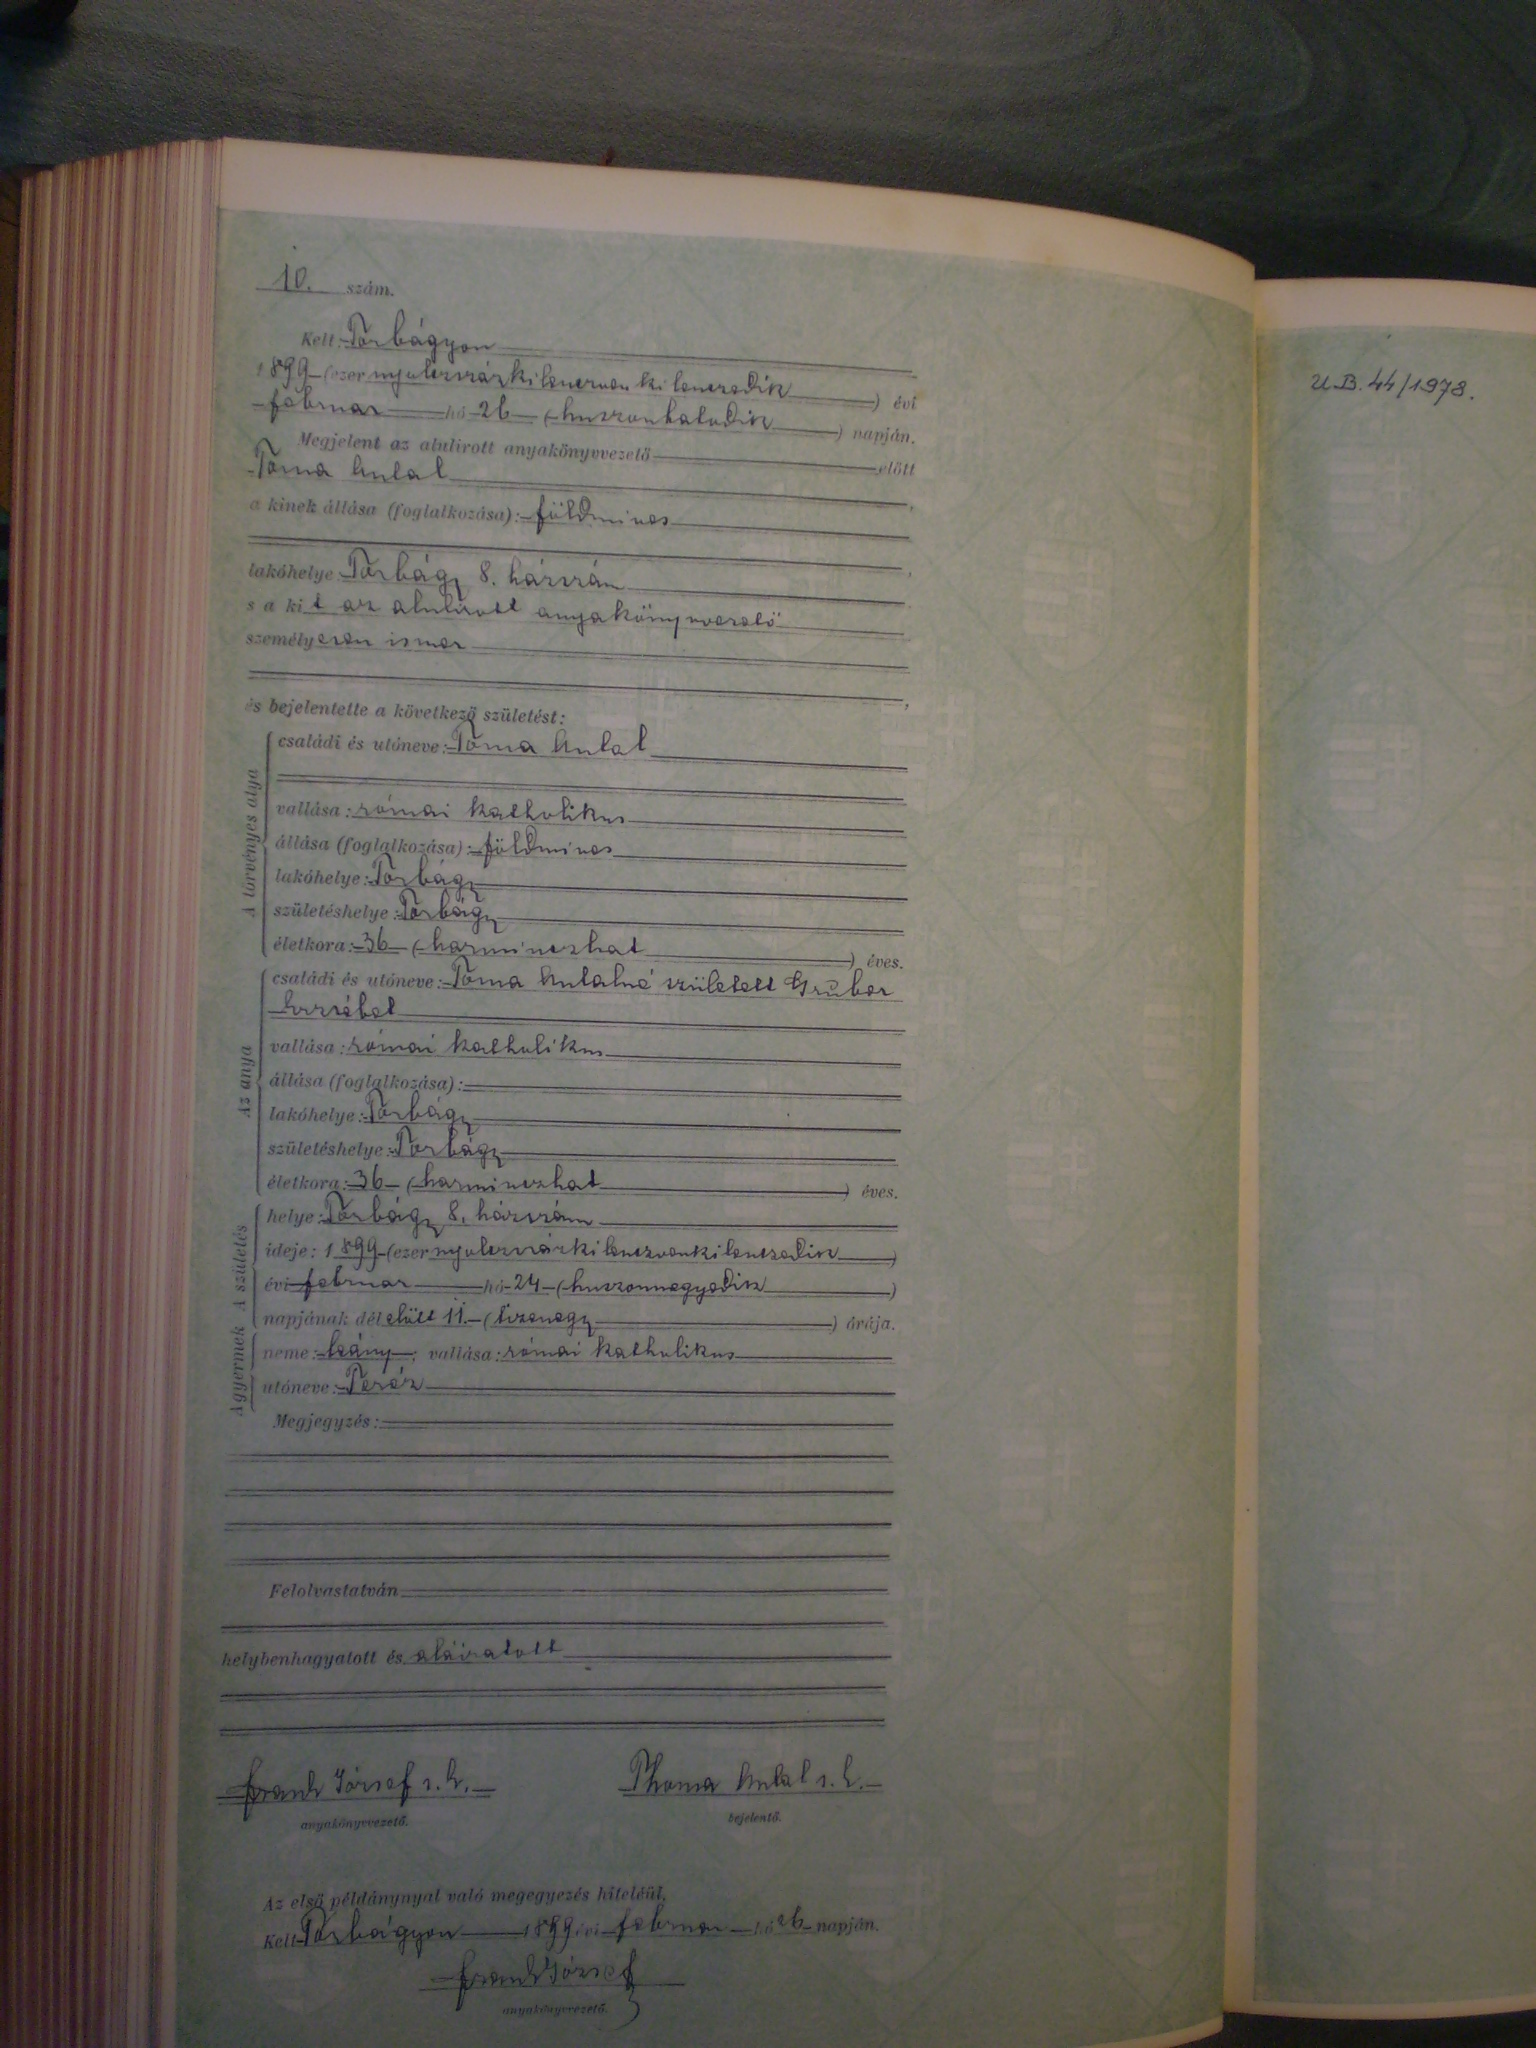 10. szám.
Kelt: Torbágyon
1899 (ezer nyolczszázkilenczvenkilenczedik) évi
február hó 26 (huszonhatodik) napján.
Megjelent az alulirott anyakönyvvezető előtt
Toma Antal
a kinek állása (foglalkozása): földmives
lakóhelye: Torbágy 8. házszám
s a kit az alulirott anyakönyvvezető
személyesen ismer
és bejelentette a következő születést:
A törvényes atya
családi és utóneve: Toma Antal
vallása: római katholikus
állása (foglalkozása): földmives
lakóhelye: Torbágy
születéshelye: Torbágy
életkora: 36 (harminczhat) éves.
Az anya
családi és utóneve: Toma Antalné született Gruber
Erzsébet
vallása: római katholikus
állása (foglalkozása):
lakóhelye: Torbágy
születéshelye: Torbágy
életkora: 36 (harminczhat) éves.
A születés
helye: Torbágy 8. házszám
ideje: 1899 (ezer nyolczszázkilenczvenkilenczedik)
évi február hó 24 (huszonnegyedik)
napjának délelőtt 11. (tizenegy) órája.
A gyermek
neme: leány; vallása: római katholikus
utóneve: Teréz
Megjegyzés:
Felolvastatván
helybenhagyatott és aláiratott
Frank József s. k. Thoma Antal s. k.
anyakönyvvezető. bejelentő.
Az első példánynyal való megegyezés hiteléül,
Kelt Torbágyon 1899 évi február hó 26 napján.
Frank József
anyakönyvvezető.
U.B. 44/1978.